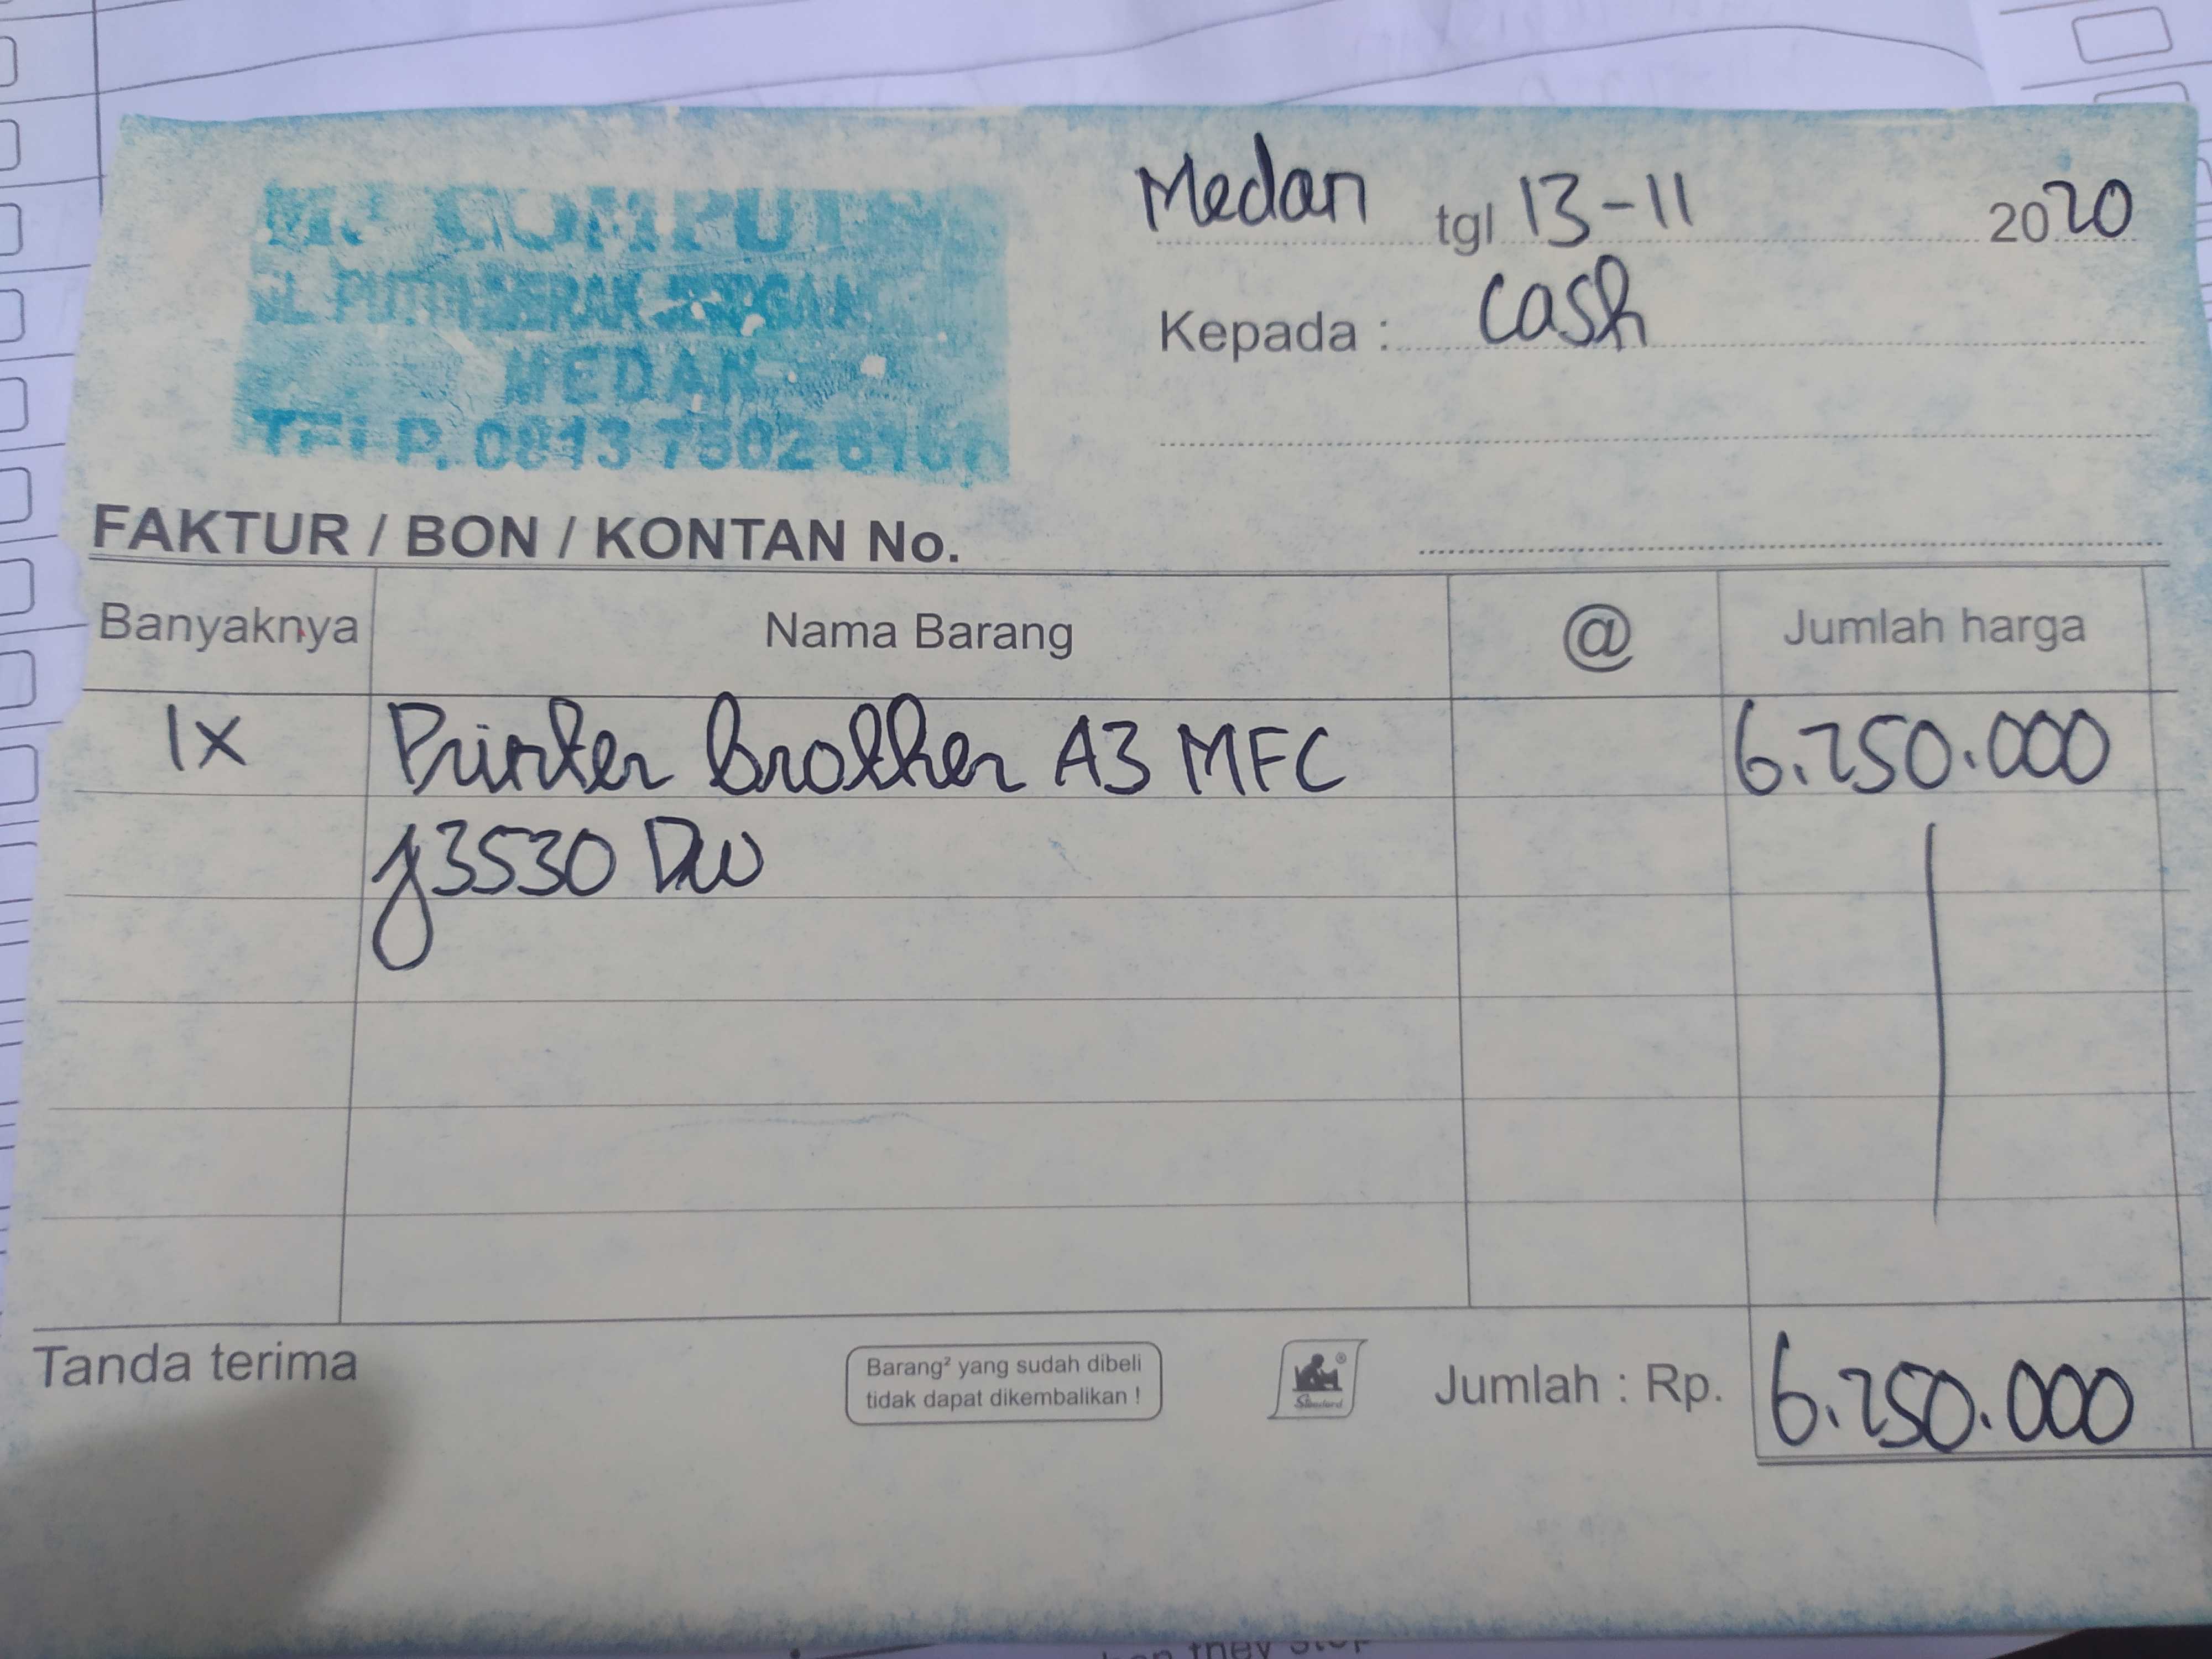 Medan tgl 13-11 2020
Kepada : Cash
MEDAN
TELP. 0813 7502 6167
FAKTUR / BON / KONTAN No.
Banyaknya Nama Barang @ Jumlah harga
1x Printer Brother A3 MFC 6.250.000
J3530 DW
Tanda terima
Barang² yang sudah dibeli
tidak dapat dikembalikan !
Standard
Jumlah : Rp. 6.250.000
they stop